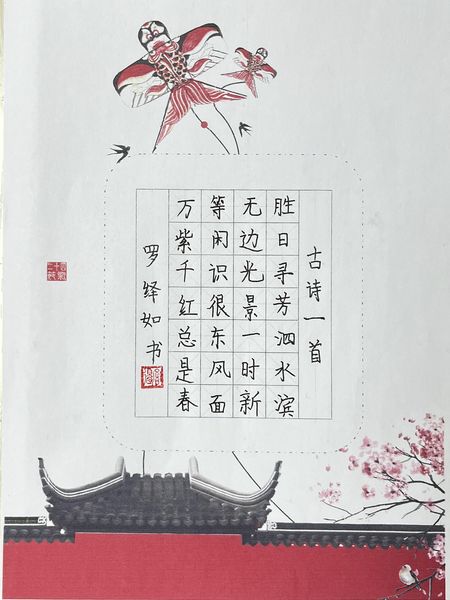 古诗一首
胜日寻芳泗水滨
无边光景一时新
等闲识很东风面
万紫千红总是春
罗绎如书